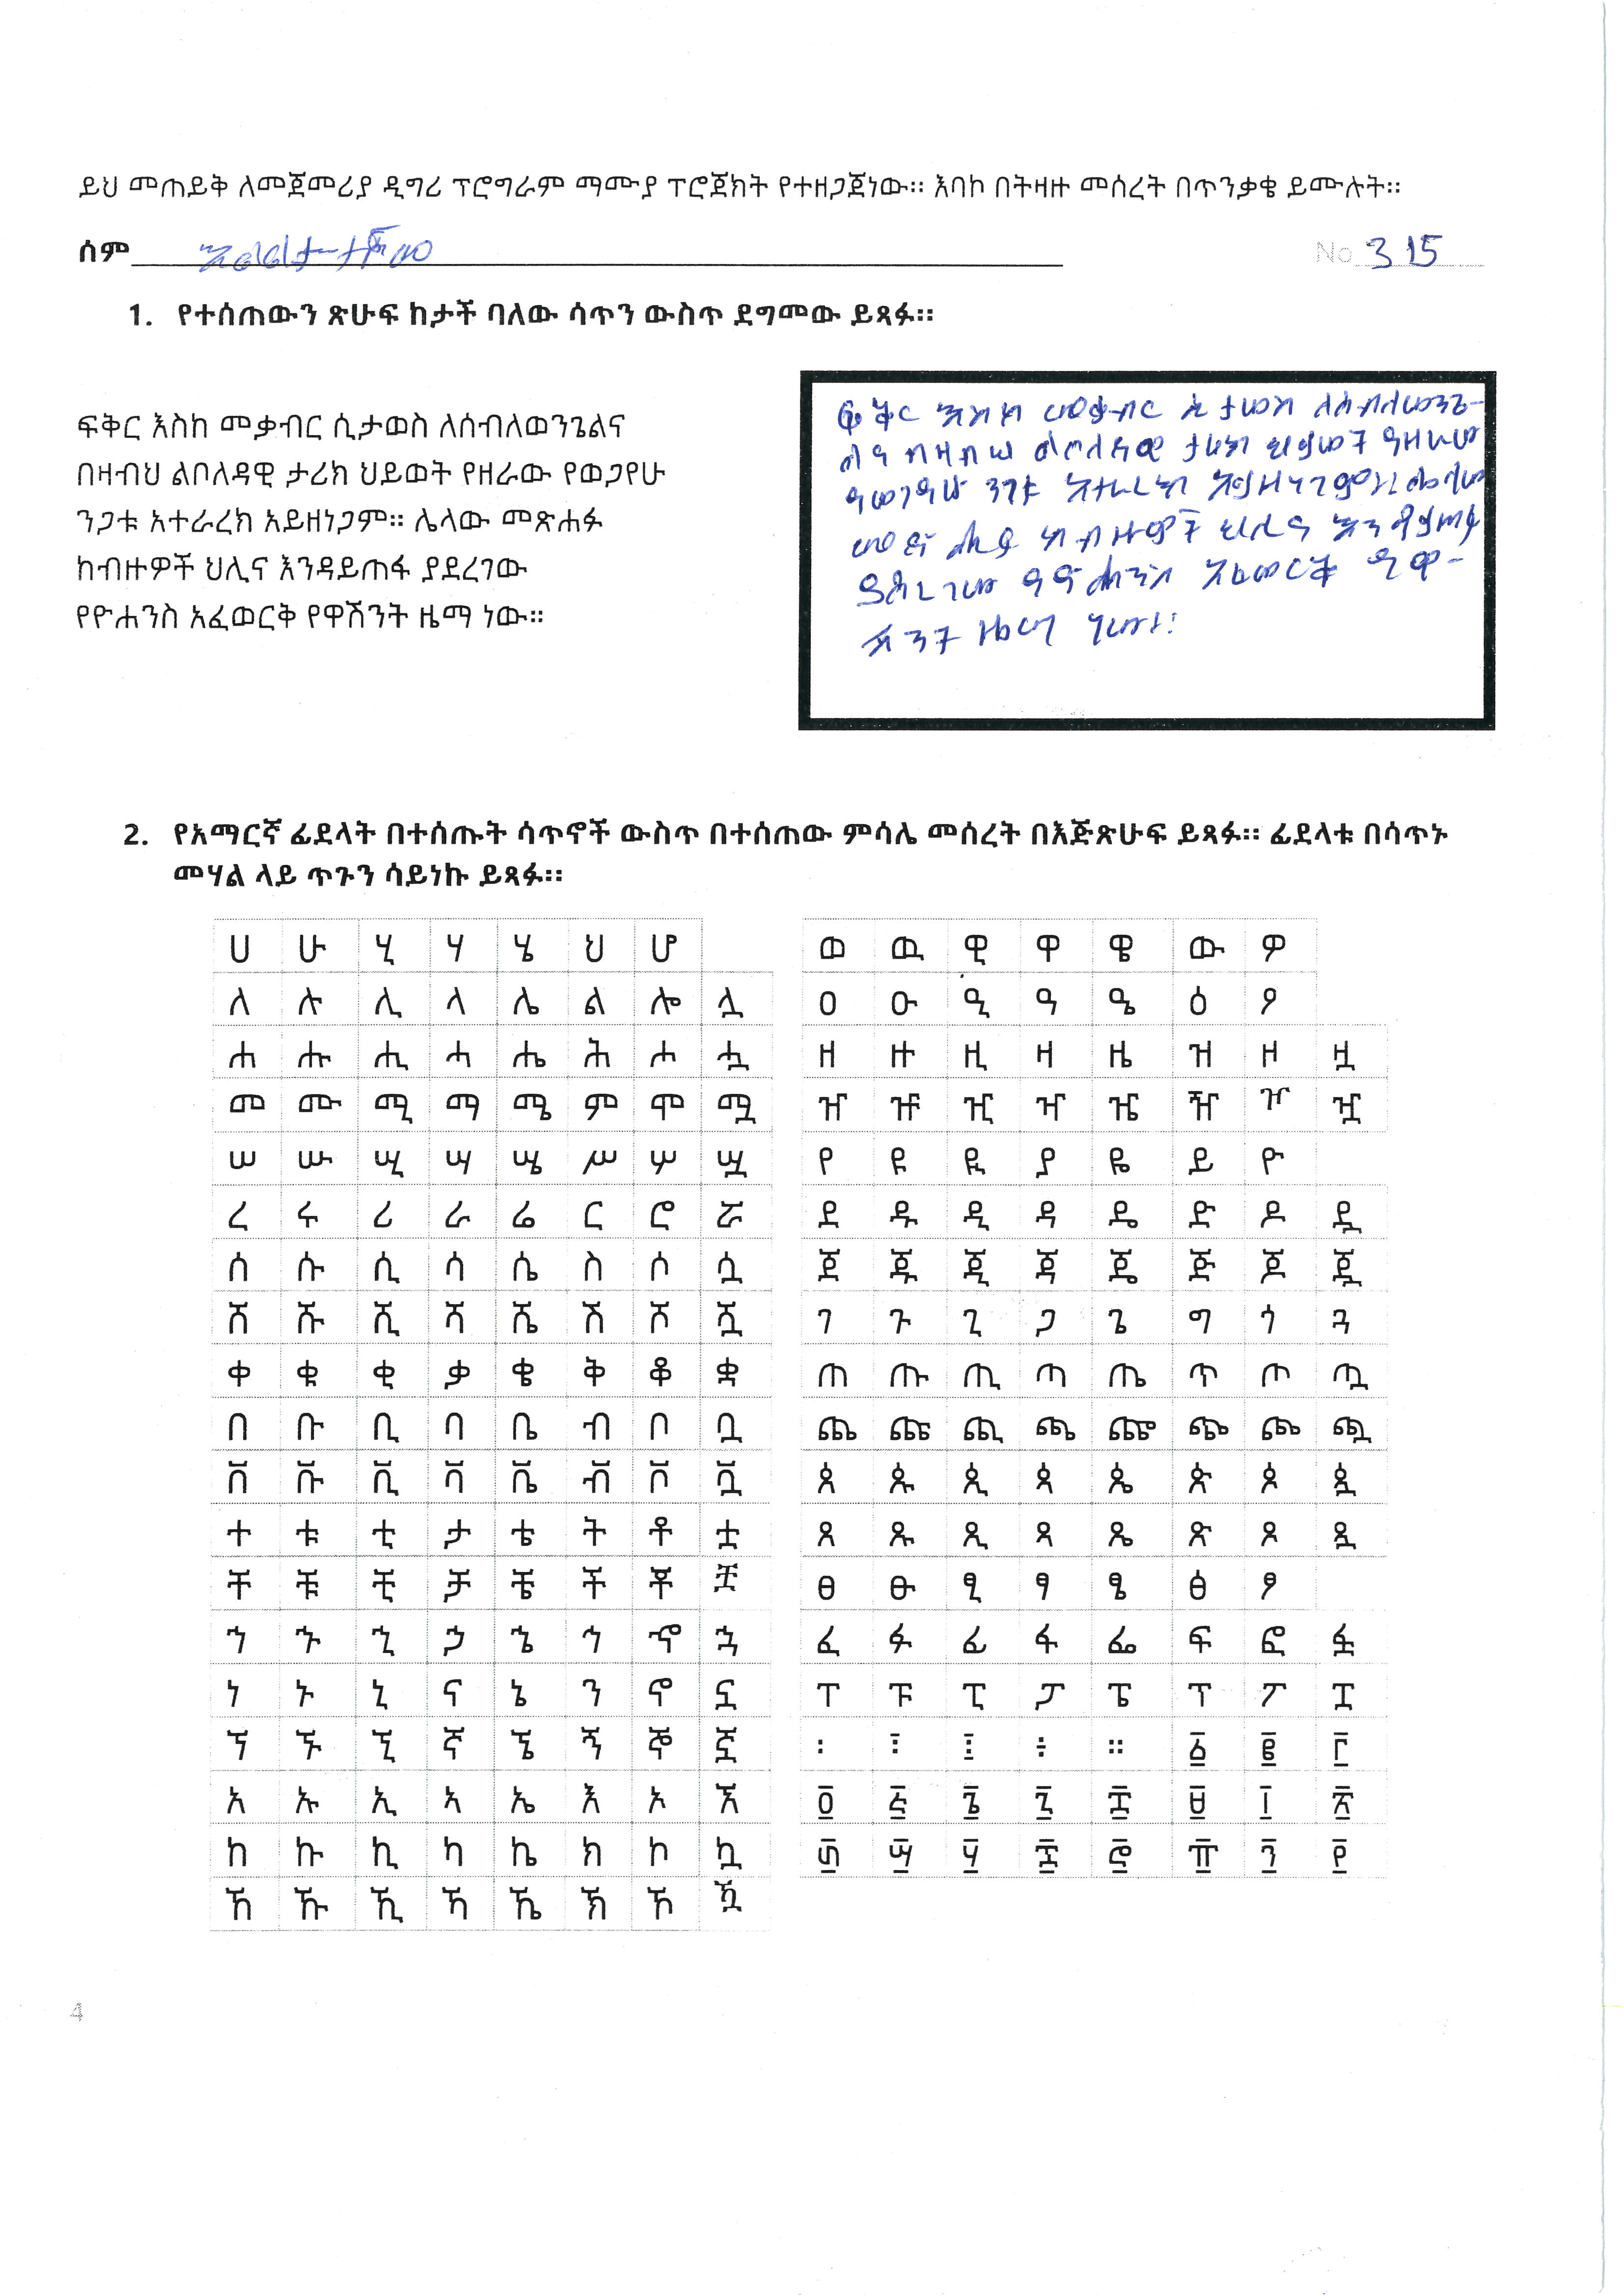 ይህ መጠይቅ ለመጀመሪያ ዲግሪ ፕሮግራም ማሙያ ፕሮጀክት የተዘጋጀነው። እባኮ በትዛዙ መሰረት በጥንቃቄ ይሙሉት።
ስም
No 315
1. የተሰጠውን ጽሁፍ ከታች ባለው ሳጥን ውስጥ ደግመው ይጻፉ።
ፍቅር እስከ መቃብር ሲታወስ ለሰብለወንጌልና
በዛብህ ልቦለዳዊ ታሪክ ህይወት የዘራው የወጋየሁ
ንጋቱ አተራረክ አይዘነጋም። ሌላው መጽሐፉ
ከብዙዎች ህሊና እንዳይጠፋ ያደረገው
የዮሐንስ አፈወርቅ የዋሽንት ዜማ ነው።
ፍቅር እስከ መቃብር ሲታወስ ለሰብለወንጌ-
ልና በዛብህ ልቦለዳዊ ታሪክ ህይወት የዘራው
የወጋየሁ ንጋቱ አተራረክ አይዘነጋም። ሌላው
መፅሐፉ ከብዙዎች ህሊና እንዳይጠፋ
ያደረገው የዮሐንስ አፈወርቅ የዋ-
ሽንት ዜማ ነው።
2. የአማርኛ ፊደላት በተሰጡት ሳጥኖች ውስጥ በተሰጠው ምሳሌ መሰረት በእጅጽሁፍ ይጻፉ። ፊደላቱ በሳጥኑ
መሃል ላይ ጥጉን ሳይነኩ ይጻፉ።
ሀ ሁ ሂ ሃ ሄ ህ ሆ
ለ ሉ ሊ ላ ሌ ል ሎ ሏ
ሐ ሑ ሒ ሓ ሔ ሕ ሖ ሗ
መ ሙ ሚ ማ ሜ ም ሞ ሟ
ሠ ሡ ሢ ሣ ሤ ሥ ሦ ሧ
ረ ሩ ሪ ራ ሬ ር ሮ ሯ
ሰ ሱ ሲ ሳ ሴ ስ ሶ ሷ
ሸ ሹ ሺ ሻ ሼ ሽ ሾ ሿ
ቀ ቁ ቂ ቃ ቄ ቅ ቆ ቋ
በ ቡ ቢ ባ ቤ ብ ቦ ቧ
ቨ ቩ ቪ ቫ ቬ ቭ ቮ ቯ
ተ ቱ ቲ ታ ቴ ት ቶ ቷ
ቸ ቹ ቺ ቻ ቼ ች ቾ ቿ
ኀ ኁ ኂ ኃ ኄ ኅ ኆ ኋ
ነ ኑ ኒ ና ኔ ን ኖ ኗ
ኘ ኙ ኚ ኛ ኜ ኝ ኞ ኟ
አ ኡ ኢ ኣ ኤ እ ኦ ኧ
ከ ኩ ኪ ካ ኬ ክ ኮ ኳ
ኸ ኹ ኺ ኻ ኼ ኽ ኾ ዃ
ወ ዉ ዊ ዋ ዌ ው ዎ
ዐ ዑ ዒ ዓ ዔ ዕ ዖ
ዘ ዙ ዚ ዛ ዜ ዝ ዞ ዟ
ዠ ዡ ዢ ዣ ዤ ዥ ዦ ዧ
የ ዩ ዪ ያ ዬ ይ ዮ
ደ ዱ ዲ ዳ ዴ ድ ዶ ዷ
ጀ ጁ ጂ ጃ ጄ ጅ ጆ ጇ
ገ ጉ ጊ ጋ ጌ ግ ጎ ጓ
ጠ ጡ ጢ ጣ ጤ ጥ ጦ ጧ
ጨ ጩ ጪ ጫ ጬ ጭ ጮ ጯ
ጰ ጱ ጲ ጳ ጴ ጵ ጶ ጷ
ጸ ጹ ጺ ጻ ጼ ጽ ጾ ጿ
ፀ ፁ ፂ ፃ ፄ ፅ ፆ
ፈ ፉ ፊ ፋ ፌ ፍ ፎ ፏ
ፐ ፑ ፒ ፓ ፔ ፕ ፖ ፗ
፡ ፣ ፤ ፥ ። ፩ ፪ ፫
፬ ፭ ፮ ፯ ፰ ፱ ፲ ፳
፴ ፵ ፶ ፷ ፸ ፹ ፺ ፻
4